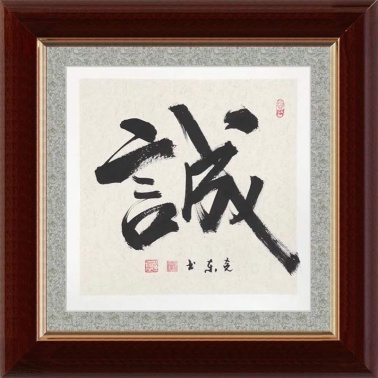 誠
克东书